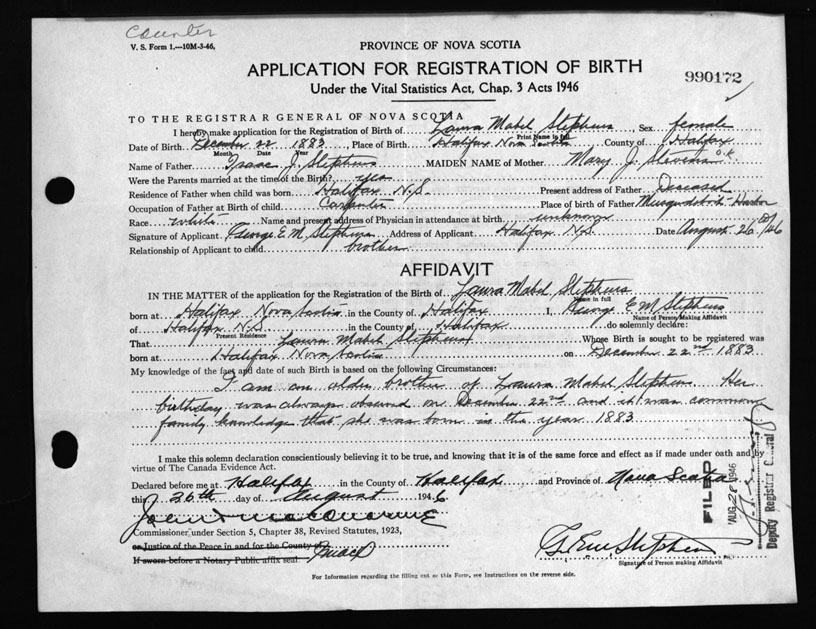 Counter
V. S. Form 1.—10M-3-46.
PROVINCE OF NOVA SCOTIA
APPLICATION FOR REGISTRATION OF BIRTH
990172
Under the Vital Statistics Act, Chap. 3 Acts 1946
TO THE REGISTRAR GENERAL OF NOVA SCOTIA
I hereby make application for the Registration of Birth of Laura Mabel Stephens, Sex female
Print Name in full
Date of Birth December 22 1883, Place of Birth Halifax Nova Scotia County of Halifax
Month Date Year
Name of Father Isaac J. Stephens MAIDEN NAME of Mother Mary J. Stevens
Were the Parents married at the time of the Birth? yes
Residence of Father when child was born Halifax N.S. Present address of Father Deceased
Occupation of Father at Birth of child Carpenter Place of birth of Father Musquodoboit Harbor
Race white Name and present address of Physician in attendance at birth unknown
Signature of Applicant George E. M. Stephens Address of Applicant Halifax N.S. Date August 26 /46
Relationship of Applicant to child brother
AFFIDAVIT
IN THE MATTER of the application for the Registration of the Birth of Laura Mabel Stephens
Name in full
born at Halifax Nova Scotia in the County of Halifax I, George E M Stephens
Name of Person Making Affidavit
of Halifax N.S. in the County of Halifax do solemnly declare:
Present Residence
That Laura Mabel Stephens Whose Birth is sought to be registered was
born at Halifax Nova Scotia on December 22nd 1883
My knowledge of the fact and date of such Birth is based on the following Circumstances:
I am an older brother of Laura Mabel Stephens Her
birthday was always observed on December 22nd and it was common
family knowledge that she was born in the year 1883
I make this solemn declaration conscientiously believing it to be true, and knowing that it is of the same force and effect as if made under oath and by
virtue of The Canada Evidence Act.
Declared before me at Halifax in the County of Halifax and Province of Nova Scotia
this 26th day of August 1946
Commissioner under Section 5, Chapter 38, Revised Statutes, 1923,
or Justice of the Peace in and for the County of
If sworn before a Notary Public affix seal
G E M Stephens
Signature of Person making Affidavit
For Information regarding the filling out of this Form, see Instructions on the reverse side.
FILED
AUG 28 1946
Deputy Registrar General